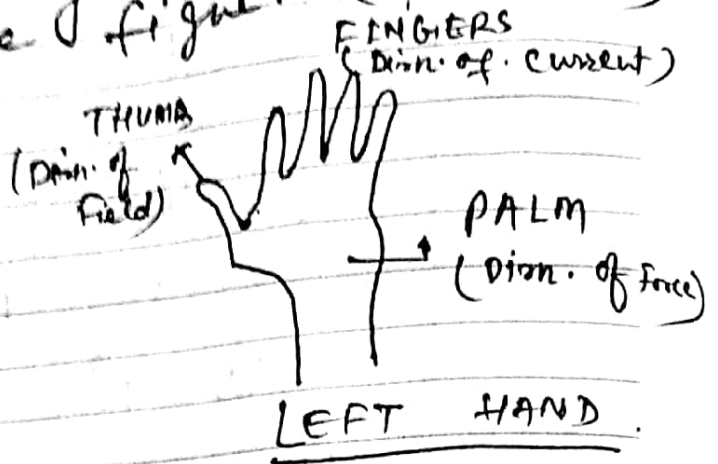 figu
FINGERS
(Dirn. of. Current)
THUMB
(Dirn. of
Field)
PALM
(Dirn. of Force)
LEFT HAND.